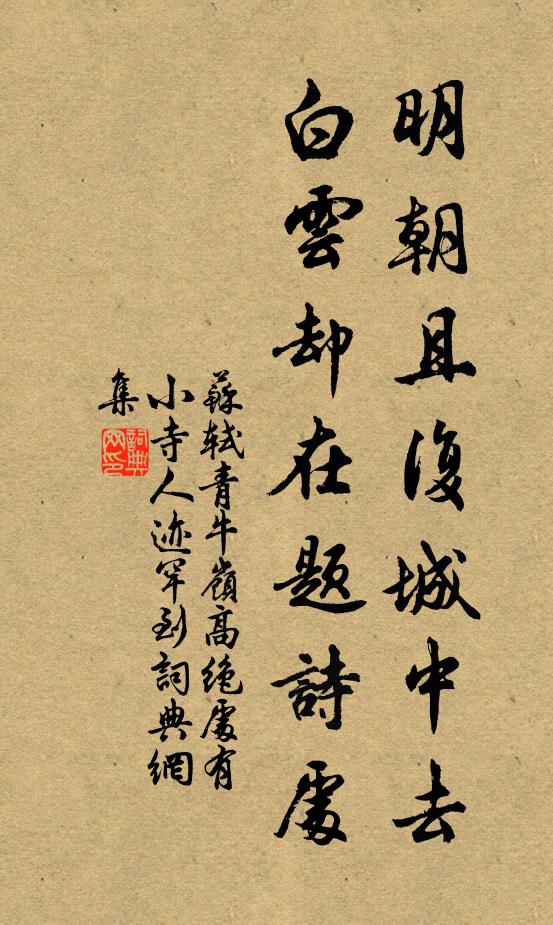 明朝且復城中去
白雲却在题詩處
蘇軾青牛嶺高绝處有
小寺人迹罕到詞典網
集
詞典
网印